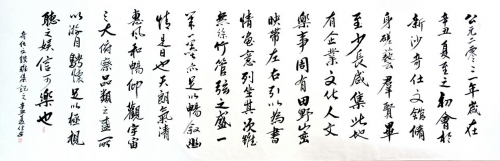 公元二零二二年歲在
辛丑夏至之初會於
新沙奇仕文館脩
身硯藝羣賢畢
至少長咸集此地
有企業文化人文
樂事周有田野山巒
映帶左右引以為書
情畫意列坐其次雖
無絲竹管弦之盛一
筆一墨亦足以暢叙幽
情是日也天朗氣清
惠風和暢仰觀宇宙
之大俯察品類之盛所
以游目騁懷足以極視
聽之娛信可樂也
奇仕文館雅集記之